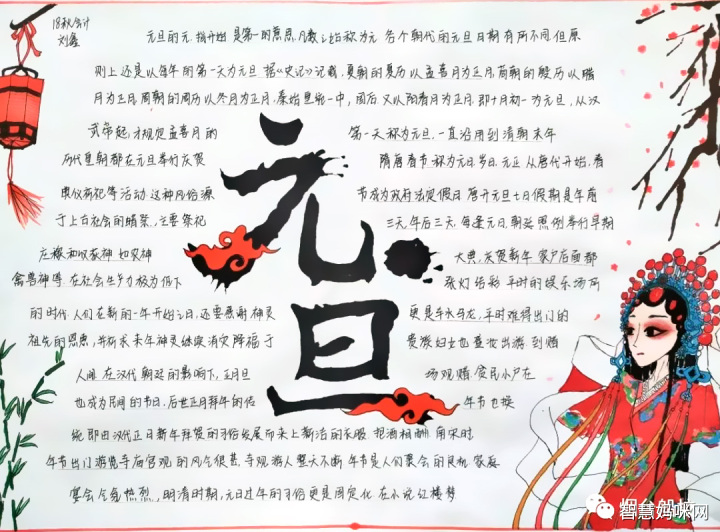 18秋会计
刘鑫
元旦的元,指开始 是第一的意思,凡数之始称为元 各个朝代的元旦日期有所不同但原
则上还是以每年的第一天为元旦 据《史记》记载,夏朝的夏历以孟喜月为正月,商朝的殷历以腊
月为正月,周朝的周历以冬月为正月,秦始皇统一中,国后 又以阳春月为正月,即十月初一为元旦,从汉
武帝起,才规定孟喜月的 第一天称为元旦,一直沿用到清朝末年
历代皇朝都在元旦举行庆贺 隋唐春节称为元旦,岁日,元正 从唐代开始,春
典仪祈祀等活动 这种风俗源 节成为政府法定假日 唐开元旦七日假期是年前
于上古社会的腊祭,主要祭祀 三天,年后三天,每逢元日,朝廷照例举行早期
庄稼和收获神 如农神 大典,庆贺新年 家户后面都
禽兽神等 在社会生产力极为低下 张灯结彩 平时的娱乐场所
的时代 人们在新的一年开始之日,还要感谢神灵 更是车水马龙,平时难得出门的
祖先的恩惠,并祈求来年神灵继续消灾降福于 贵族妇女也盛妆出游 到赌
人间 在汉代朝廷的影响下,正月旦 场观赌,贫民小户在
也成为民间的节日,后世正月拜年的传 年节也换
统 即由汉代正日新年拜贺的习俗发展而来上新洁的衣服 把酒相酬 南宋时
年节出门游览寺庙宫观的风气很甚,寺观游人整天不断 年节是人们聚会的良机 家庭
宴会气氛热烈,明清时期,元日过年的习俗更是固定化 在小说红楼梦
元旦
智慧妈咪网